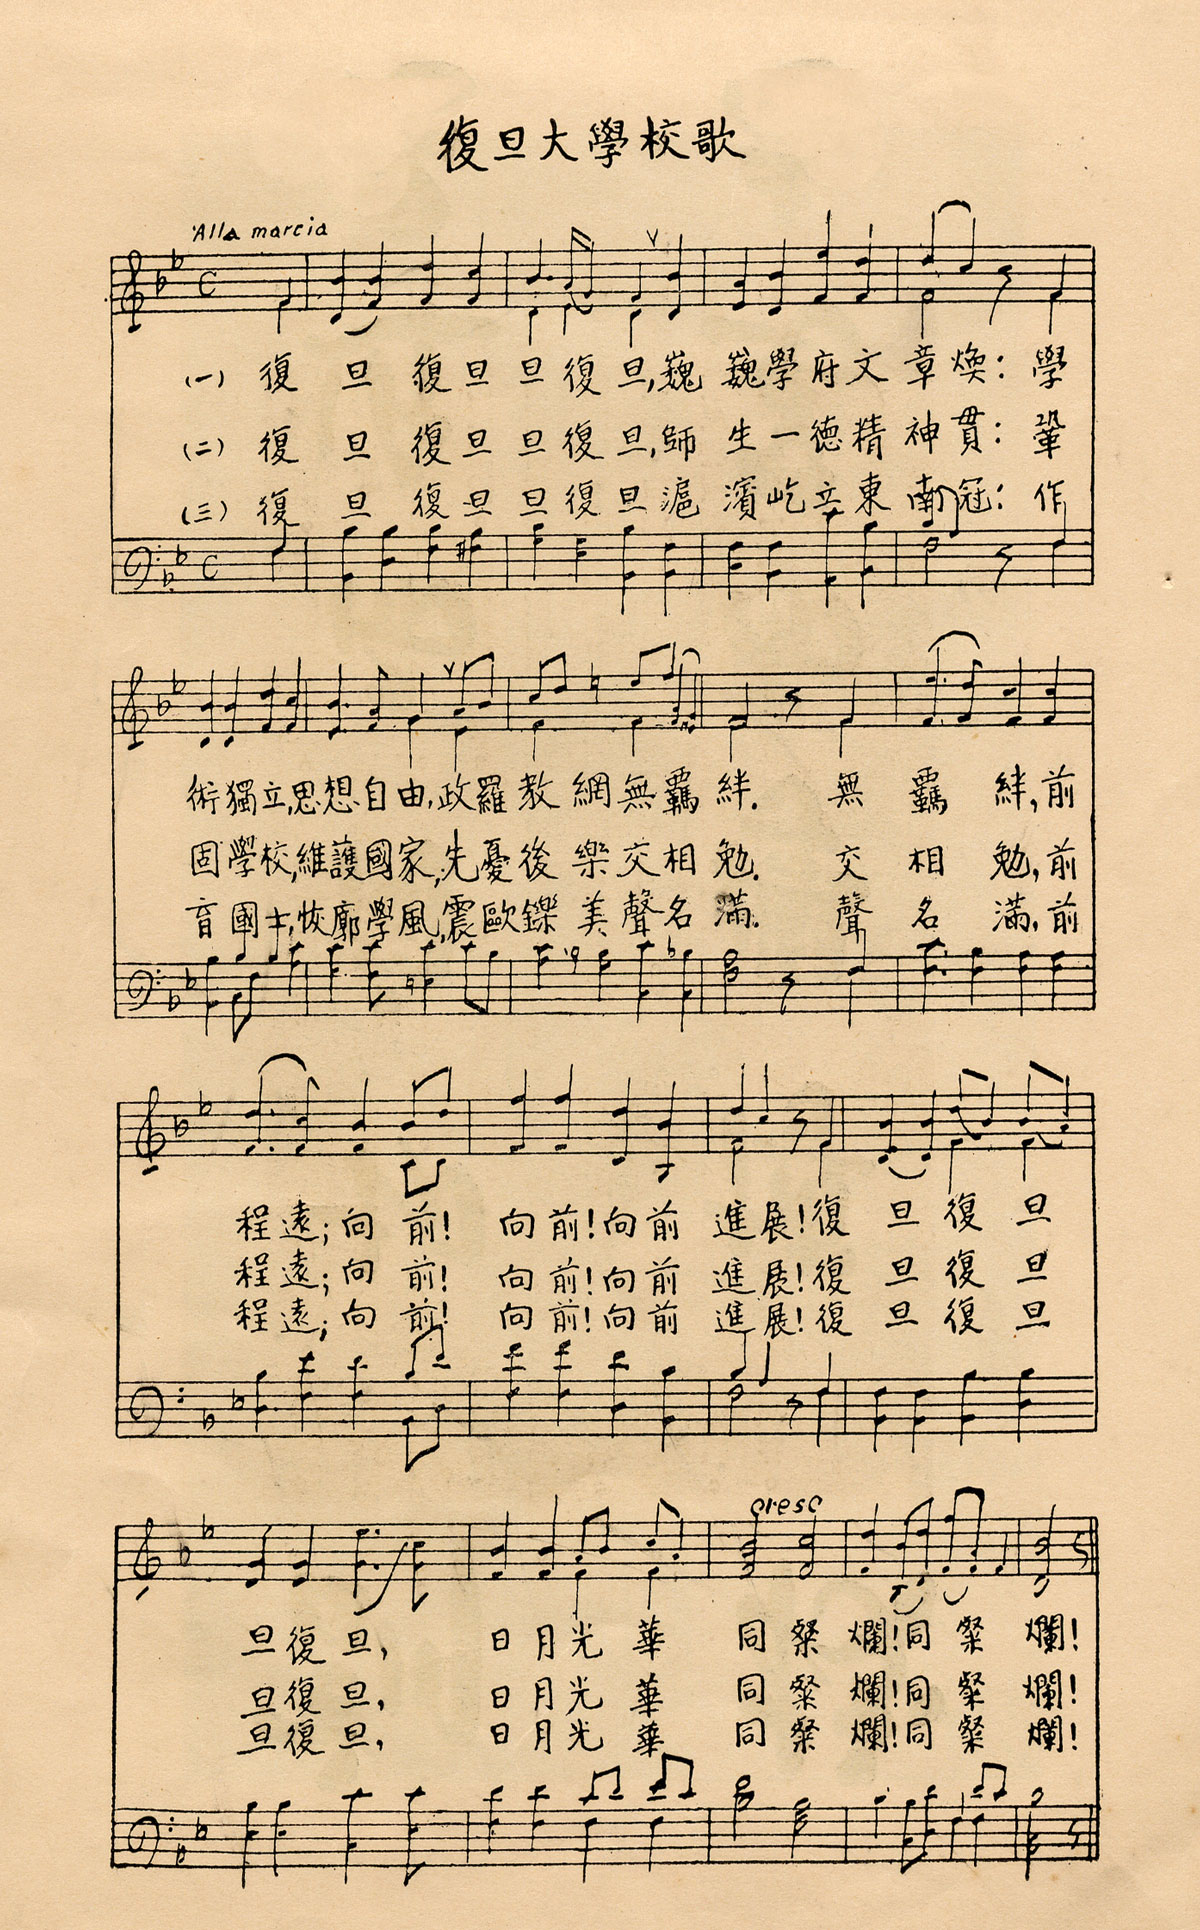 復旦大學校歌
Alla marcia
(一) 復旦復旦旦復旦,巍巍學府文章煥:學
(二) 復旦復旦旦復旦,師生一德精神貫:鞏
(三) 復旦復旦旦復旦滬濱屹立東南冠:作
術獨立,思想自由,政羅教網無羈絆.無羈絆,前
固學校,維護國家,先憂後樂交相勉.交相勉,前
育國士,恢廓學風,震歐鑠美聲名滿.聲名滿,前
程遠;向前!向前!向前進展!復旦復旦
程遠;向前!向前!向前進展!復旦復旦
程遠;向前!向前!向前進展!復旦復旦
cresc
旦復旦,日月光華同粲爛!同粲爛!
旦復旦,日月光華同粲爛!同粲爛!
旦復旦,日月光華同粲爛!同粲爛!